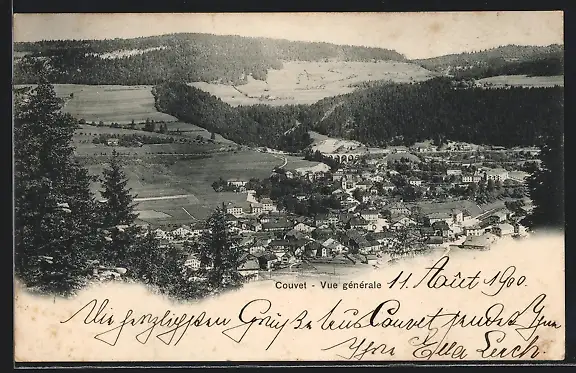 Couvet - Vue générale 11. Août 1900.
Die herzlichsten Grüße aus Couvet sendet Ihnen
Ihre Ella Lerch.